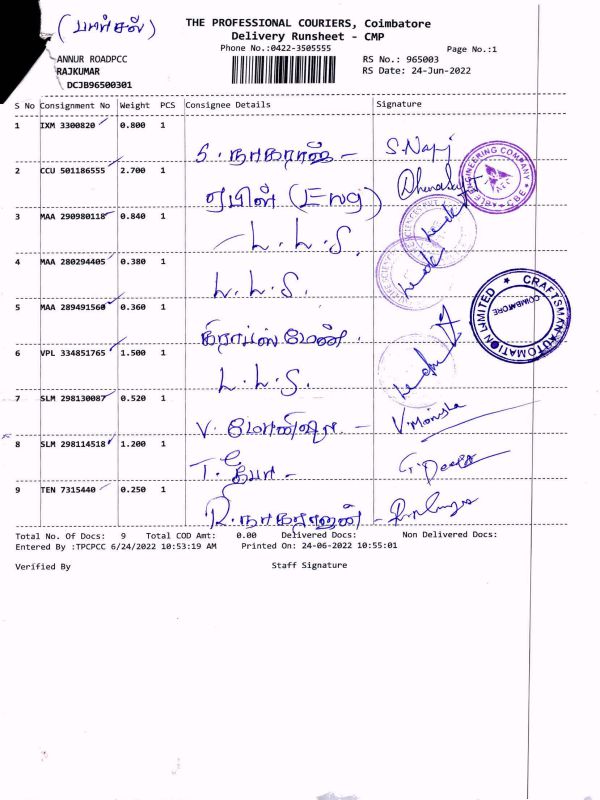 (பார்சல்)
THE PROFESSIONAL COURIERS, Coimbatore
Delivery Runsheet - CMP
Phone No.:0422-3505555
Page No.:1
ANNUR ROADPCC
RS No.: 965003
RAJKUMAR
RS Date: 24-Jun-2022
DCJB96500301
S No Consignment No Weight PCS Consignee Details Signature
1 IXM 3300820 0.800 1
S. நாகராஜ் -
2 CCU 501186555 2.700 1
ஏபிள் (Eng)
3 MAA 290980118 0.840 1
L.L.S.
4 MAA 280294405 0.380 1
L.L.S.
5 MAA 289491560 0.360 1
கிராப்ஸ்மேன்.
6 VPL 334851765 1.500 1
L.L.S.
7 SLM 298130087 0.520 1
V. மோனிஷா - V.Monisha
8 SLM 298114518 1.200 1
T. தீபா - T.Deepa
9 TEN 7315440 0.250 1
R. நாகராஜன் -
Total No. Of Docs: 9 Total COD Amt: 0.00 Delivered Docs: Non Delivered Docs:
Entered By :TPCPCC 6/24/2022 10:53:19 AM Printed On: 24-06-2022 10:55:01
Verified By Staff Signature
ABLE ENGINEERING COMPANY
CBE
CRAFTSMAN AUTOMATION LIMITED
COIMBATORE